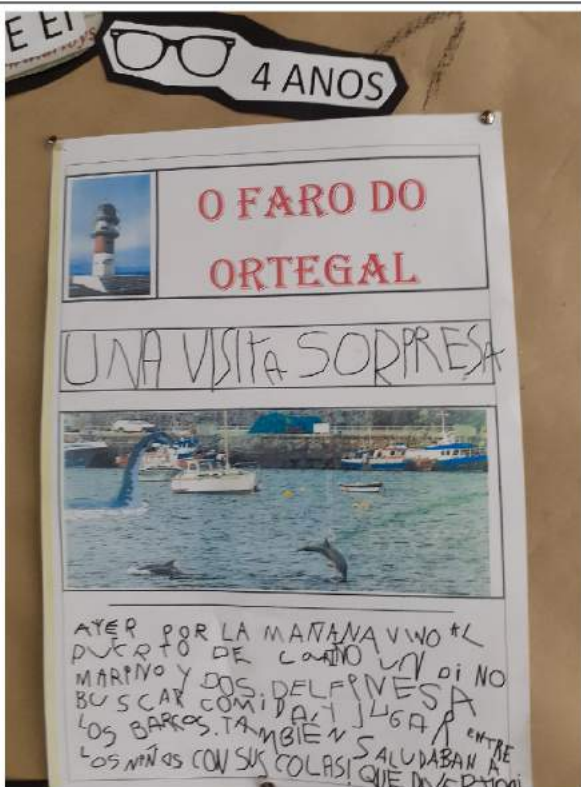 E EI
4 ANOS
O FARO DO
ORTEGAL
UNA VISITA SORPRESA
AYER POR LA MAÑANA VINO AL
PUERTO DE CARIÑO UN DINO
MARINO Y DOS DELFINES A
BUSCAR COMIDA Y JUGAR ENTRE
LOS BARCOS. TAMBIÉN SALUDABAN A
LOS NIÑOS CON SUS COLAS! QUE DIVERTIDO!